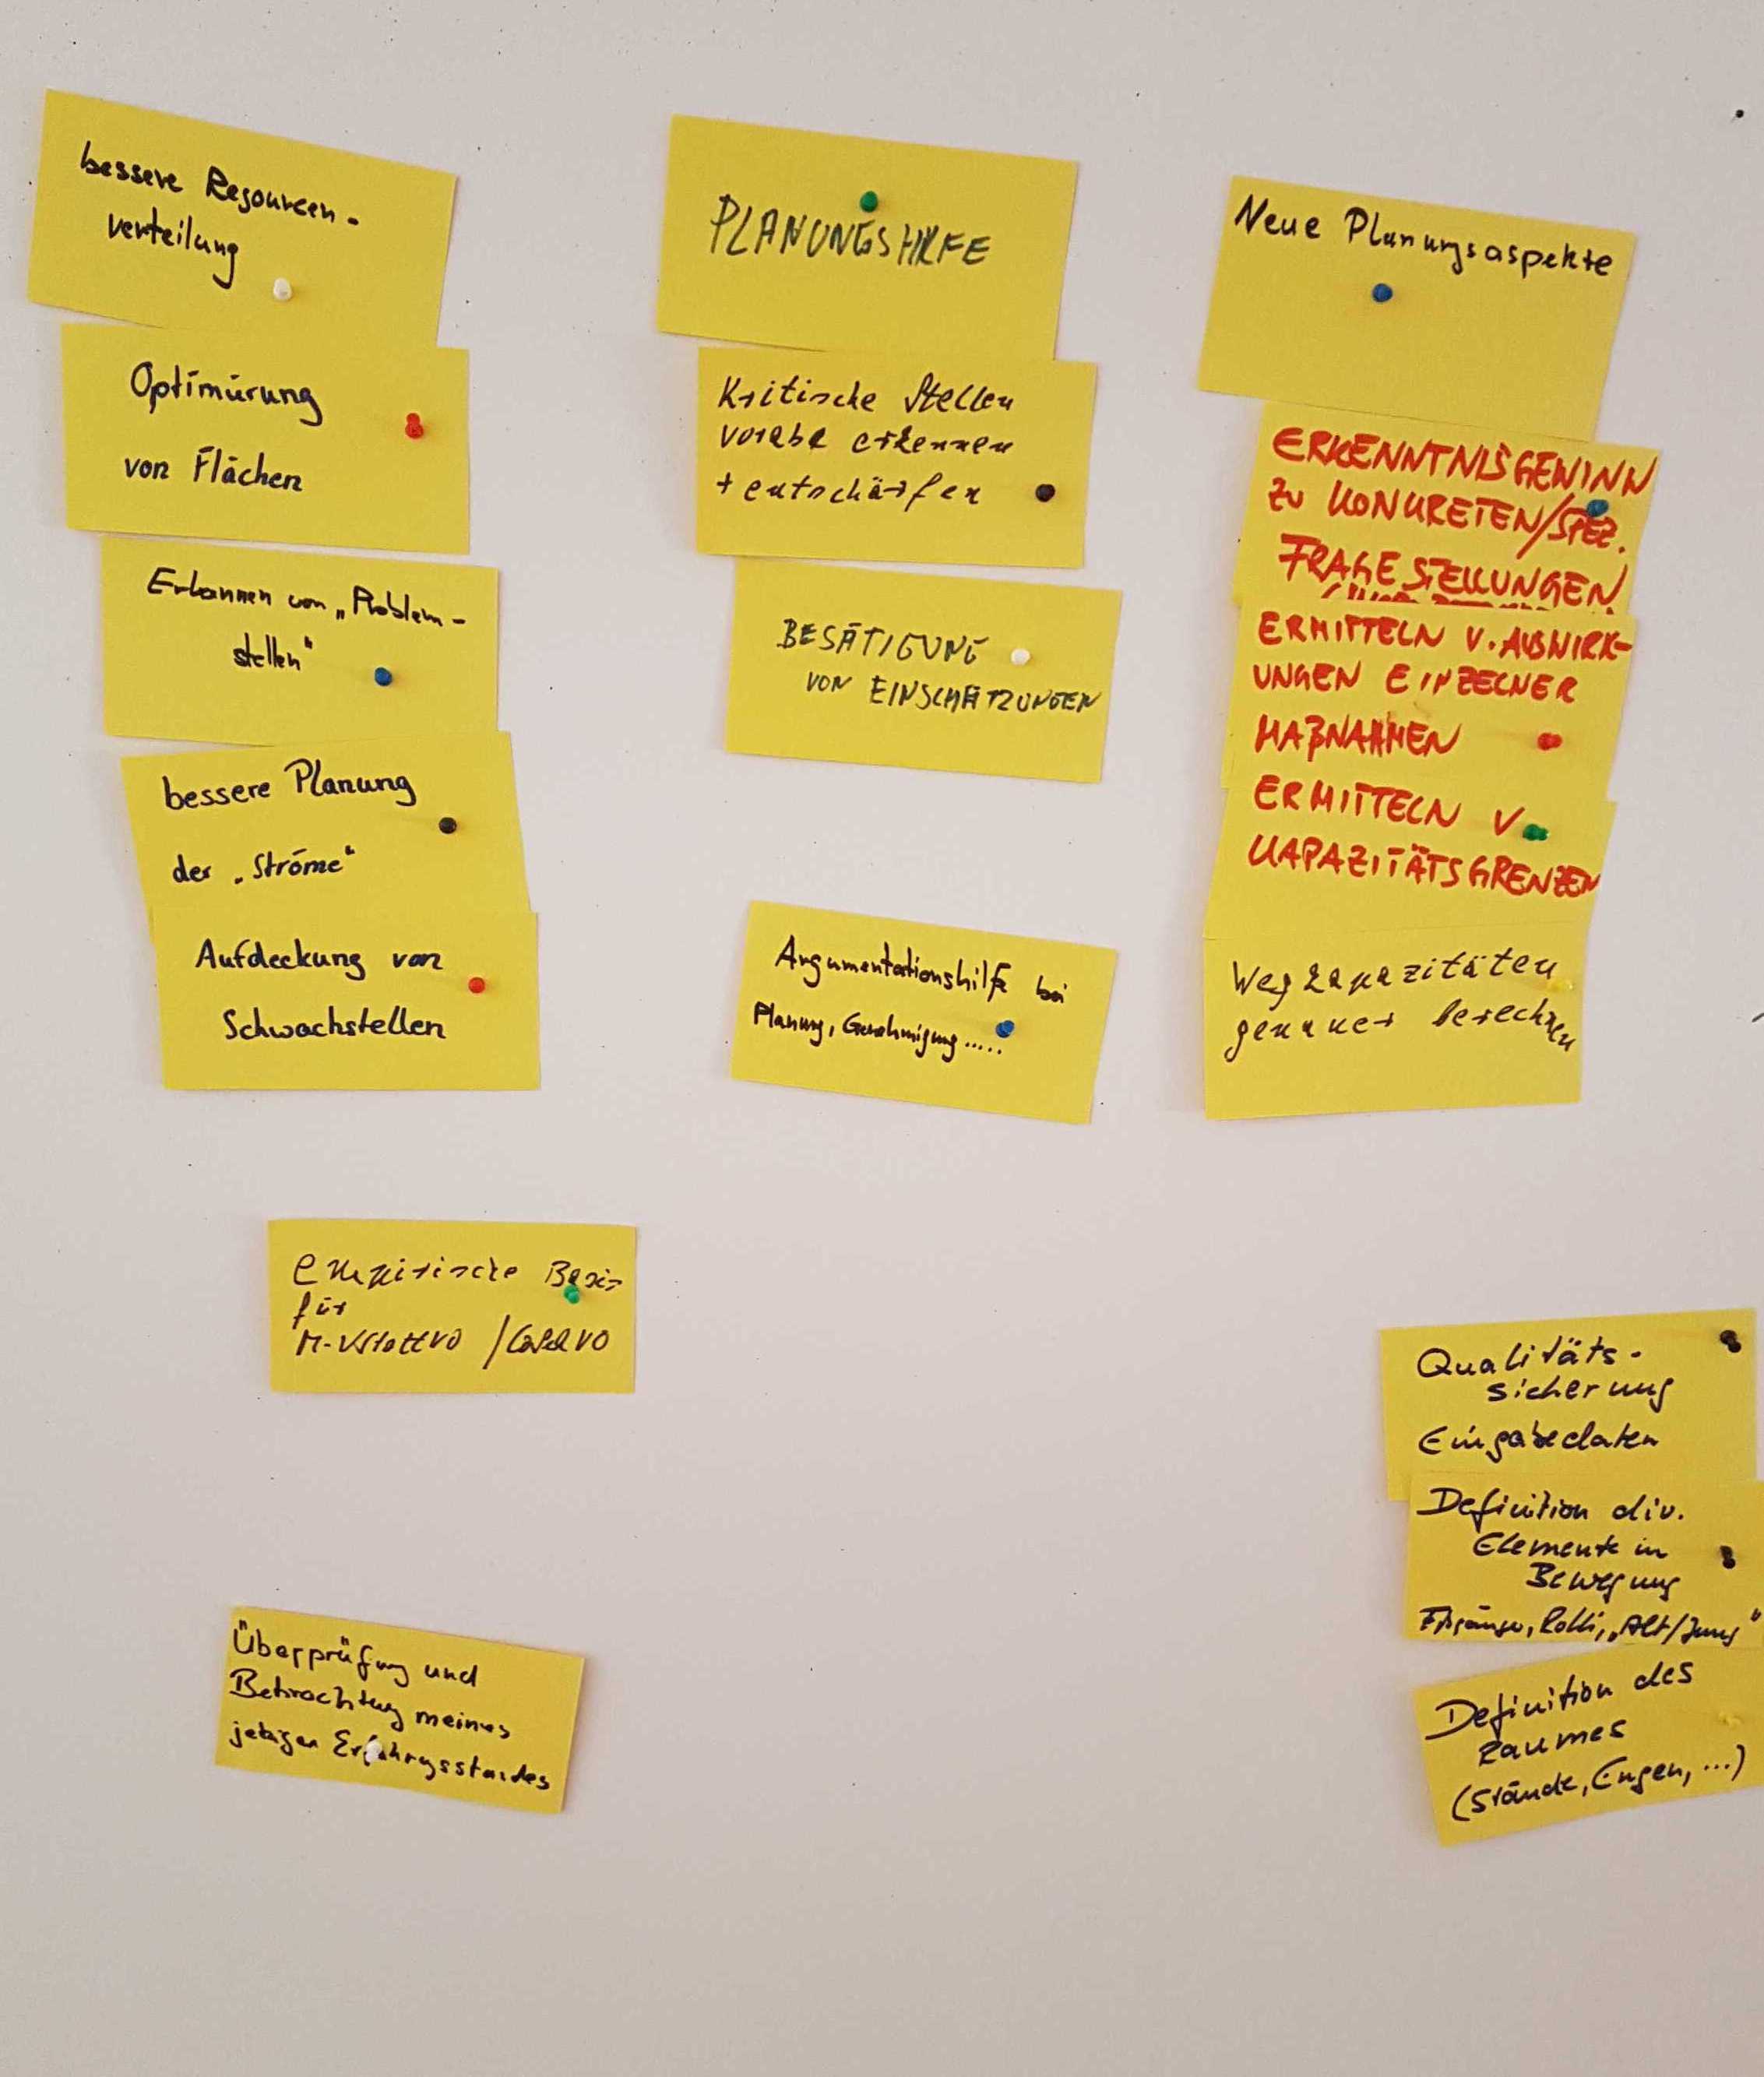 bessere Resourcen-
verteilung
Optimirung
von Flächen
Erkennen von „Problem-
stellen"
bessere Planung
der „Ströme"
Aufdeckung von
Schwachstellen
empirische Basis
für
M-VStättVO /
Überprüfung und
Betrachtung meines
jetzigen Erfahrungsstandes
PLANUNGSHILFE
Kritische Stellen
vorab erkennen
+ entschärfen
BESÄTIGUNG
VON EINSCHÄTZUNGEN
Argumentationshilfe bei
Planung, Genehmigung.....
Neue Planungsaspekte
ERKENNTNISGEWINN
ZU KONKRETEN/SPEZ.
FRAGESTELLUNGEN
ERMITTELN V. AUSWIRK-
UNGEN EINZELNER
MAßNAHMEN
ERMITTELN V.
KAPAZITÄTSGRENZEN
Wegkapazitäten
genauer berechnen
Qualitäts-
sicherung
Eingabedaten
Definition div.
Elemente in
Bewegung
Rolli, „Alt/Jung"
Definition des
Raumes
(Stände, Engen, ...)